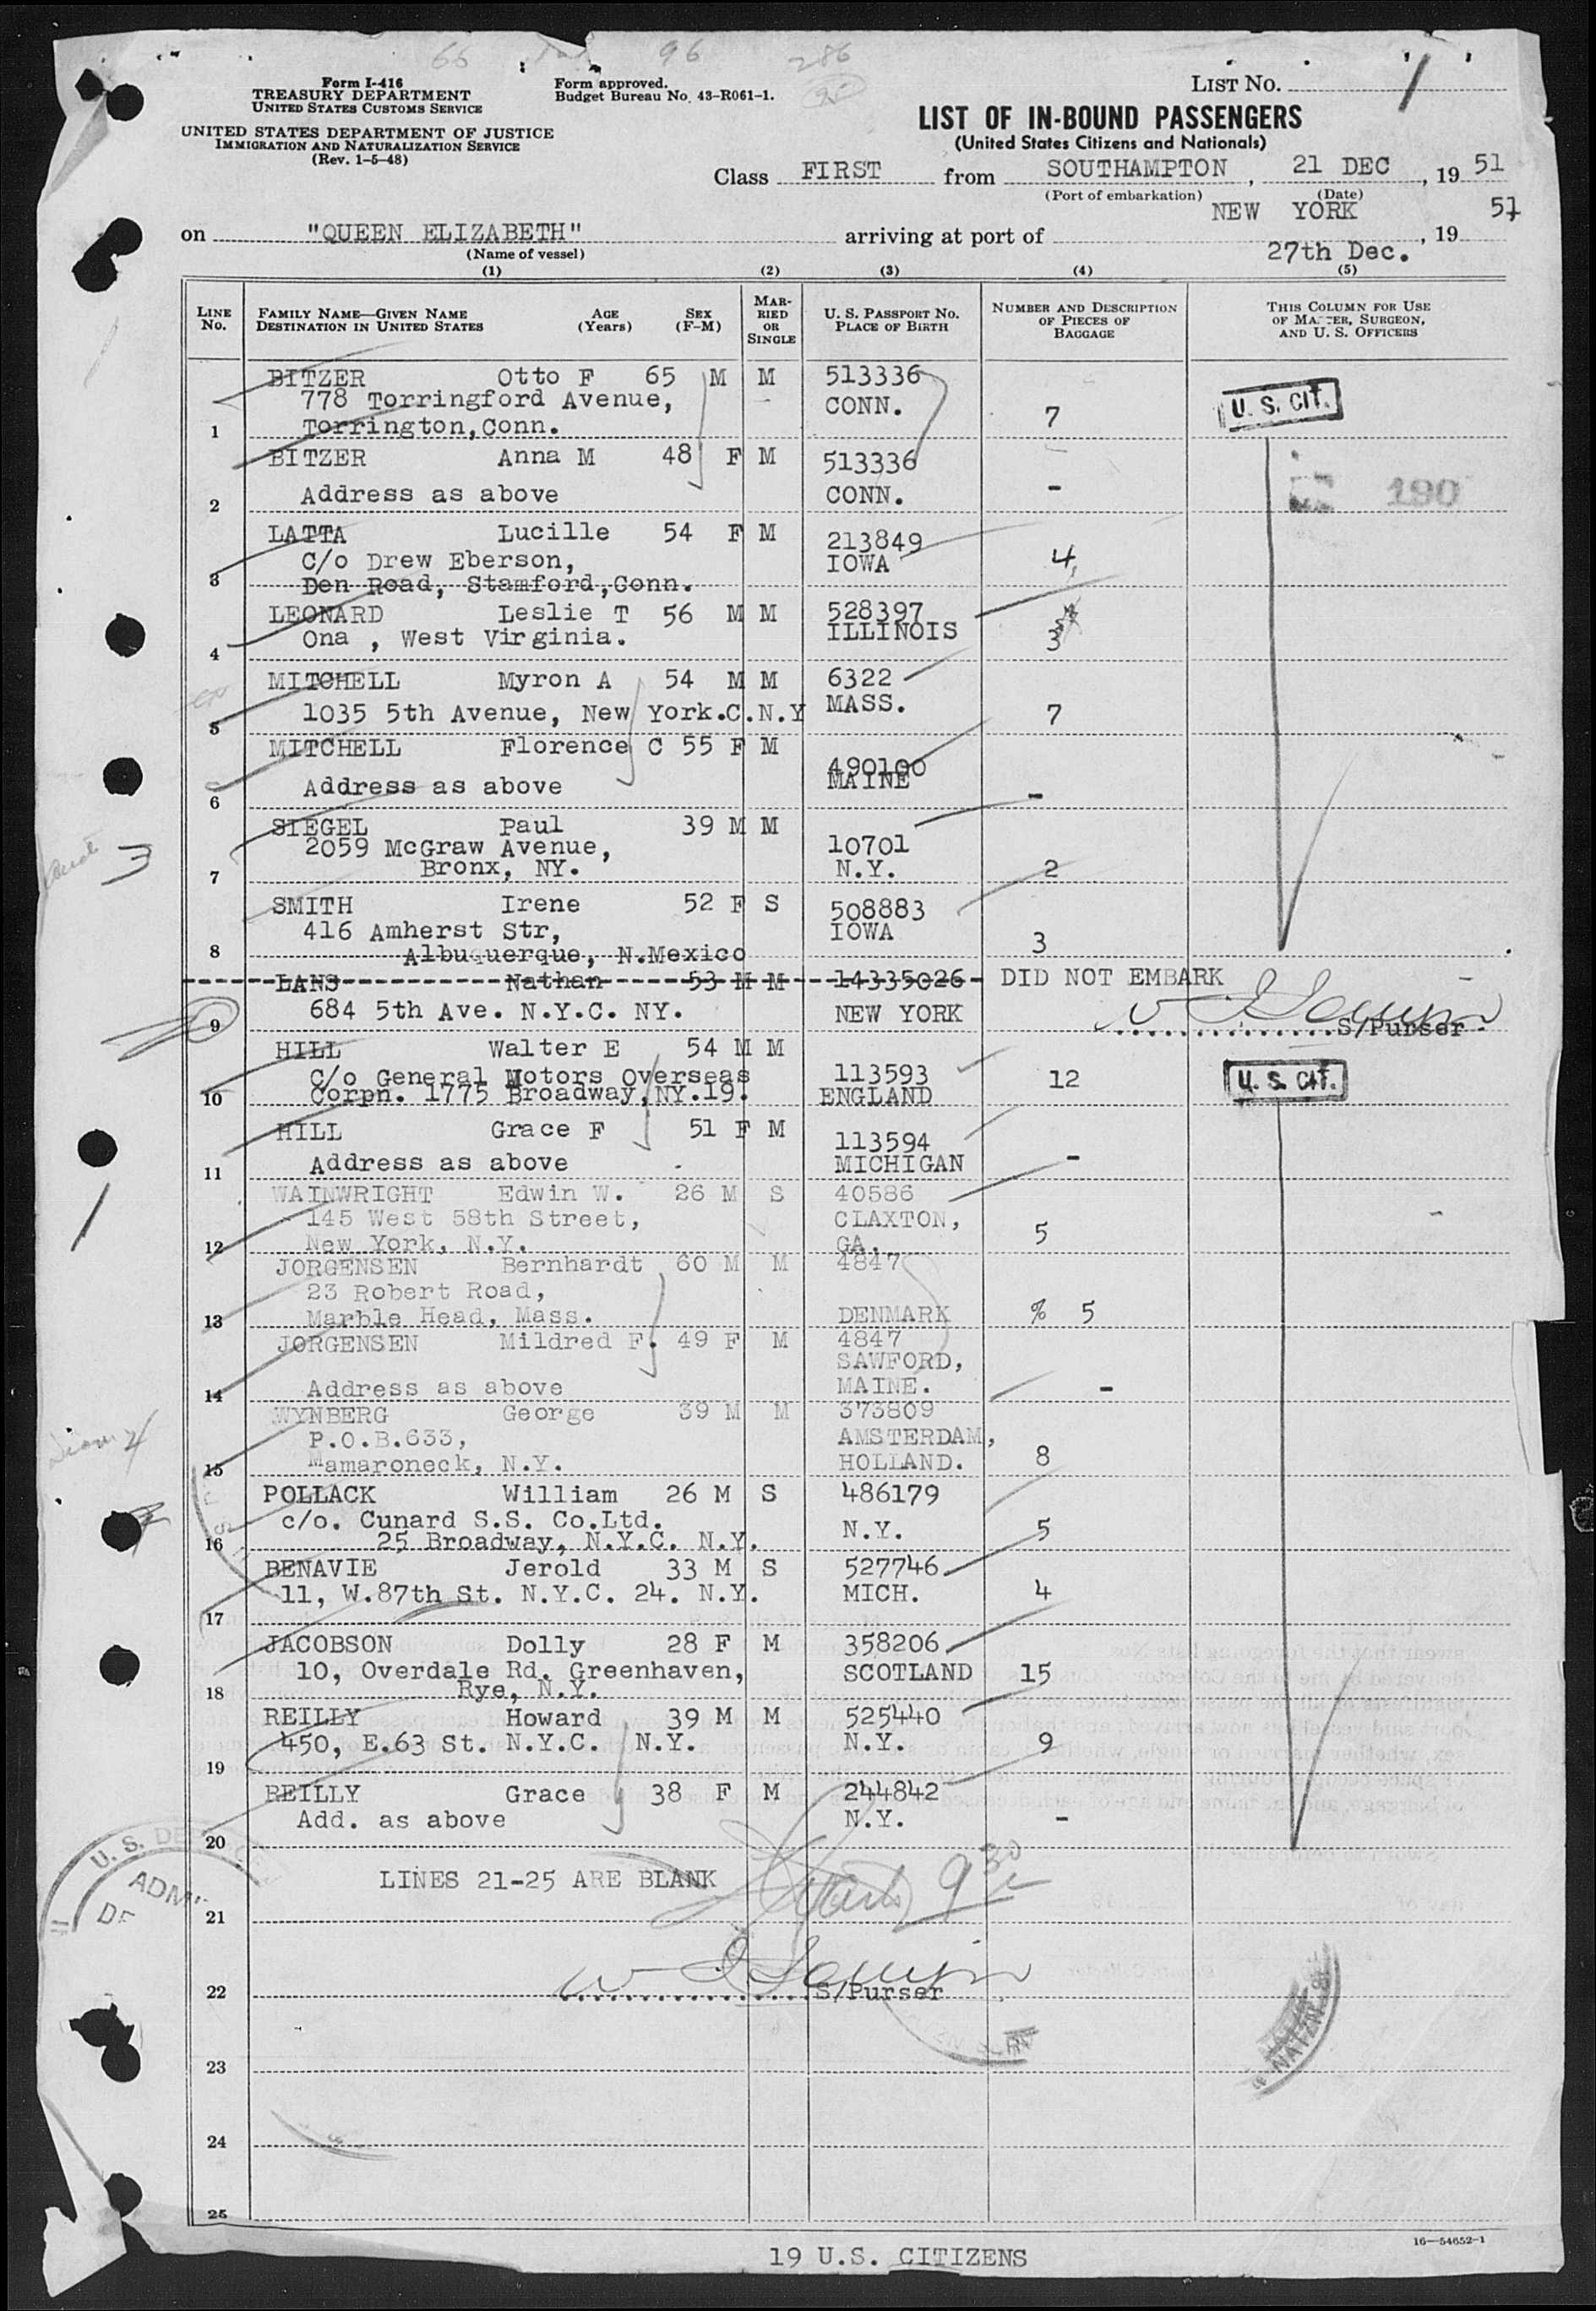 66 96 286
Form I-416
TREASURY DEPARTMENT
UNITED STATES CUSTOMS SERVICE
Form approved.
Budget Bureau No. 43-R061-1.
LIST NO. 1
UNITED STATES DEPARTMENT OF JUSTICE
IMMIGRATION AND NATURALIZATION SERVICE
(Rev. 1-5-48)
LIST OF IN-BOUND PASSENGERS
(United States Citizens and Nationals)
Class FIRST from SOUTHAMPTON, 21 DEC, 19 51
(Port of embarkation) (Date)
on "QUEEN ELIZABETH" arriving at port of NEW YORK, 19 51
(Name of vessel) 27th Dec.
(1) (2) (3) (4) (5)
LINE NO. FAMILY NAME—GIVEN NAME DESTINATION IN UNITED STATES AGE (Years) SEX (F-M) MARRIED OR SINGLE U. S. PASSPORT NO. PLACE OF BIRTH NUMBER AND DESCRIPTION OF PIECES OF BAGGAGE THIS COLUMN FOR USE OF MASTER, SURGEON, AND U. S. OFFICERS
BITZER Otto F 65 M M 513336
778 Torringford Avenue, CONN. 7 U. S. CIT.
1 Torrington,Conn.
BITZER Anna M 48 F M 513336
2 Address as above CONN. - 190
LATTA Lucille 54 F M 213849
C/o Drew Eberson, IOWA 4
3 Den Road, Stamford,Conn.
LEONARD Leslie T 56 M M 528397
4 Ona , West Virginia. ILLINOIS 3
MITCHELL Myron A 54 M M 6322
5 1035 5th Avenue, New York.C.N.Y MASS. 7
MITCHELL Florence C 55 F M 490100
6 Address as above MAINE -
SIEGEL Paul 39 M M
2059 McGraw Avenue, 10701
7 Bronx, NY. N.Y. 2
3
SMITH Irene 52 F S 508883
416 Amherst Str, IOWA
8 Albuquerque, N.Mexico 3
LANS Nathan 53 M M 14335026 DID NOT EMBARK
9 684 5th Ave. N.Y.C. NY. NEW YORK S/Purser
HILL Walter E 54 M M
C/o General Motors Overseas 113593 12 U. S. CIT.
10 Corpn. 1775 Broadway,NY.19. ENGLAND
HILL Grace F 51 F M 113594
11 Address as above MICHIGAN -
WAINWRIGHT Edwin W. 26 M S 40586
145 West 58th Street, CLAXTON,
12 New York, N.Y. GA. 5
JORGENSEN Bernhardt 60 M M 4847
23 Robert Road,
13 Marble Head, Mass. DENMARK % 5
JORGENSEN Mildred F. 49 F M 4847
SAWFORD,
14 Address as above MAINE. -
WYNBERG George 39 M M 373809
P.O.B.633, AMSTERDAM,
15 Mamaroneck, N.Y. HOLLAND. 8
POLLACK William 26 M S 486179
c/o. Cunard S.S. Co.Ltd. N.Y. 5
16 25 Broadway, N.Y.C. N.Y.
BENAVIE Jerold 33 M S 527746
11, W.87th St. N.Y.C. 24. N.Y. MICH. 4
17
JACOBSON Dolly 28 F M 358206
10, Overdale Rd. Greenhaven, SCOTLAND 15
18 Rye, N.Y.
REILLY Howard 39 M M 525440
450, E.63 St. N.Y.C. N.Y. N.Y. 9
19
REILLY Grace 38 F M 244842
Add. as above N.Y. -
20
U. S. DE
ADM
LINES 21-25 ARE BLANK 9 30
21
22 S/Purser
NATZN
23
24
25
16—54652-1
19 U.S. CITIZENS